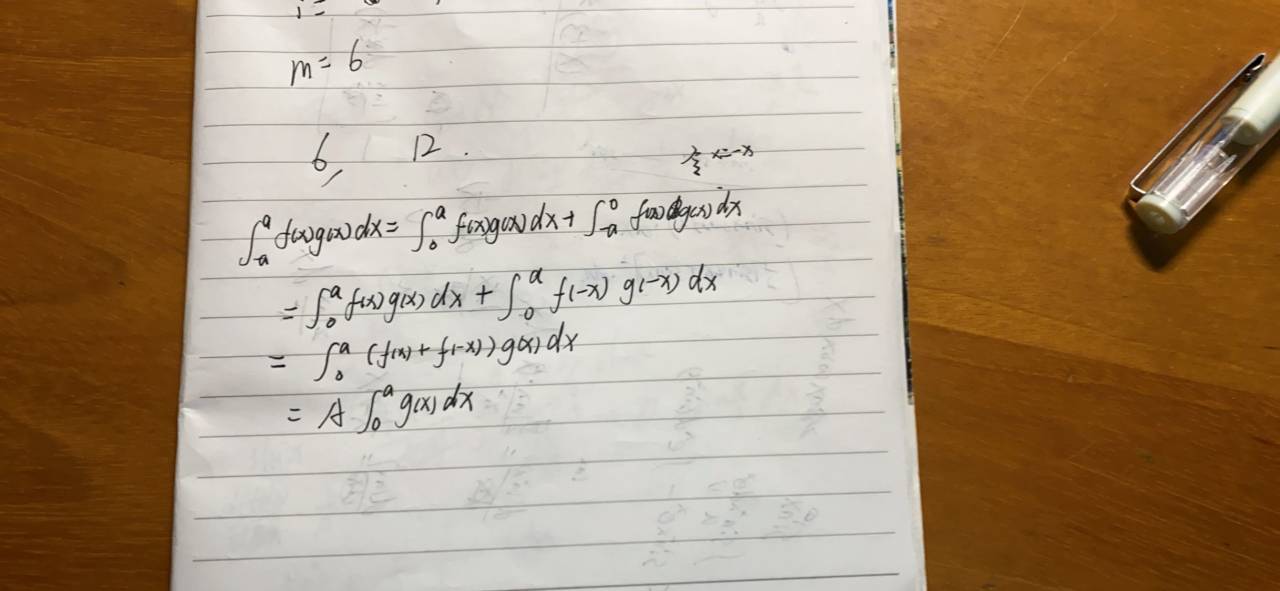 m = 6
6, 12.
令 x=-x
∫_{-a}^{a} f(x)g(x)dx = ∫_0^a f(x)g(x)dx + ∫_{-a}^0 f(x)g(x)dx
= ∫_0^a f(x)g(x)dx + ∫_0^a f(-x) g(-x) dx
= ∫_0^a (f(x)+f(-x))g(x)dx
= A ∫_0^a g(x)dx